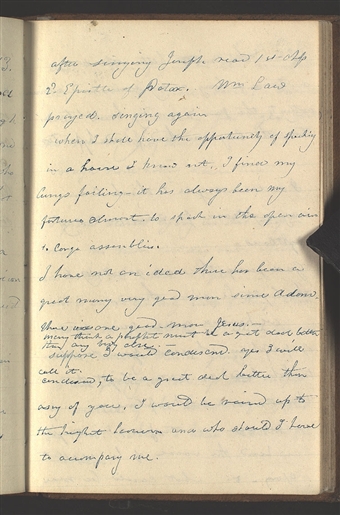 after singing Joseph read 1st chap
2d. Epistle of Peter. Wm Law
prayed. singing again
when I shall have the opportunity of speaking
in a house I know not. I find my
lungs failing - it has always been my
fortune almost, to speak in the open air
to large assemblies.
I have not an idea there has been a
great many very good men since Adam
There was one good man Jesus. -
many think a prophet must be a great deal better
than any body else. -
suppose I would condescend. yes I will
call it
condescend, to be a great deal better than
any of you, I would be raised up to
the highest heaven and who should I have
to accompany me.